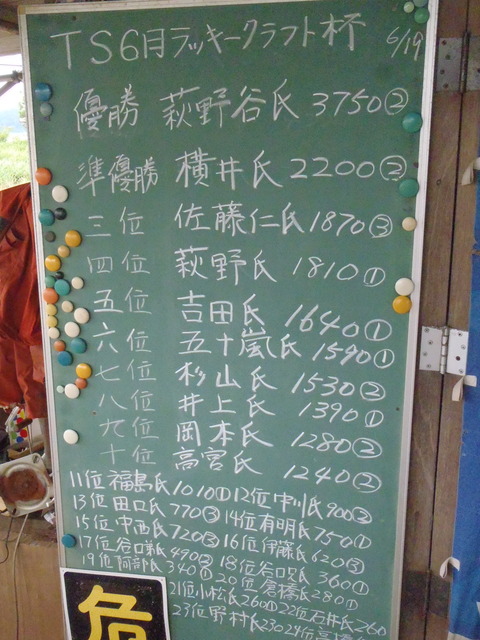 TS6月ラッキークラフト杯 6/19
優勝 萩野谷氏 3750②
準優勝 横井氏 2200②
三位 佐藤仁氏 1870③
四位 萩野氏 1810①
五位 吉田氏 1640①
六位 五十嵐氏 1590①
七位 杉山氏 1530②
八位 井上氏 1390①
九位 岡本氏 1280②
十位 高宮氏 1240②
11位 福島氏 1010① 12位 中川氏 900②
13位 田口氏 770③ 14位 有明氏 750①
15位 中西氏 720③ 16位 伊藤氏 620③
17位 谷口 490② 18位 谷口 360①
19位 阿部氏 340① 20位 倉橋氏 280①
21位 小松氏 260① 22位 石井氏 260
23位 野村氏 230 24位
危